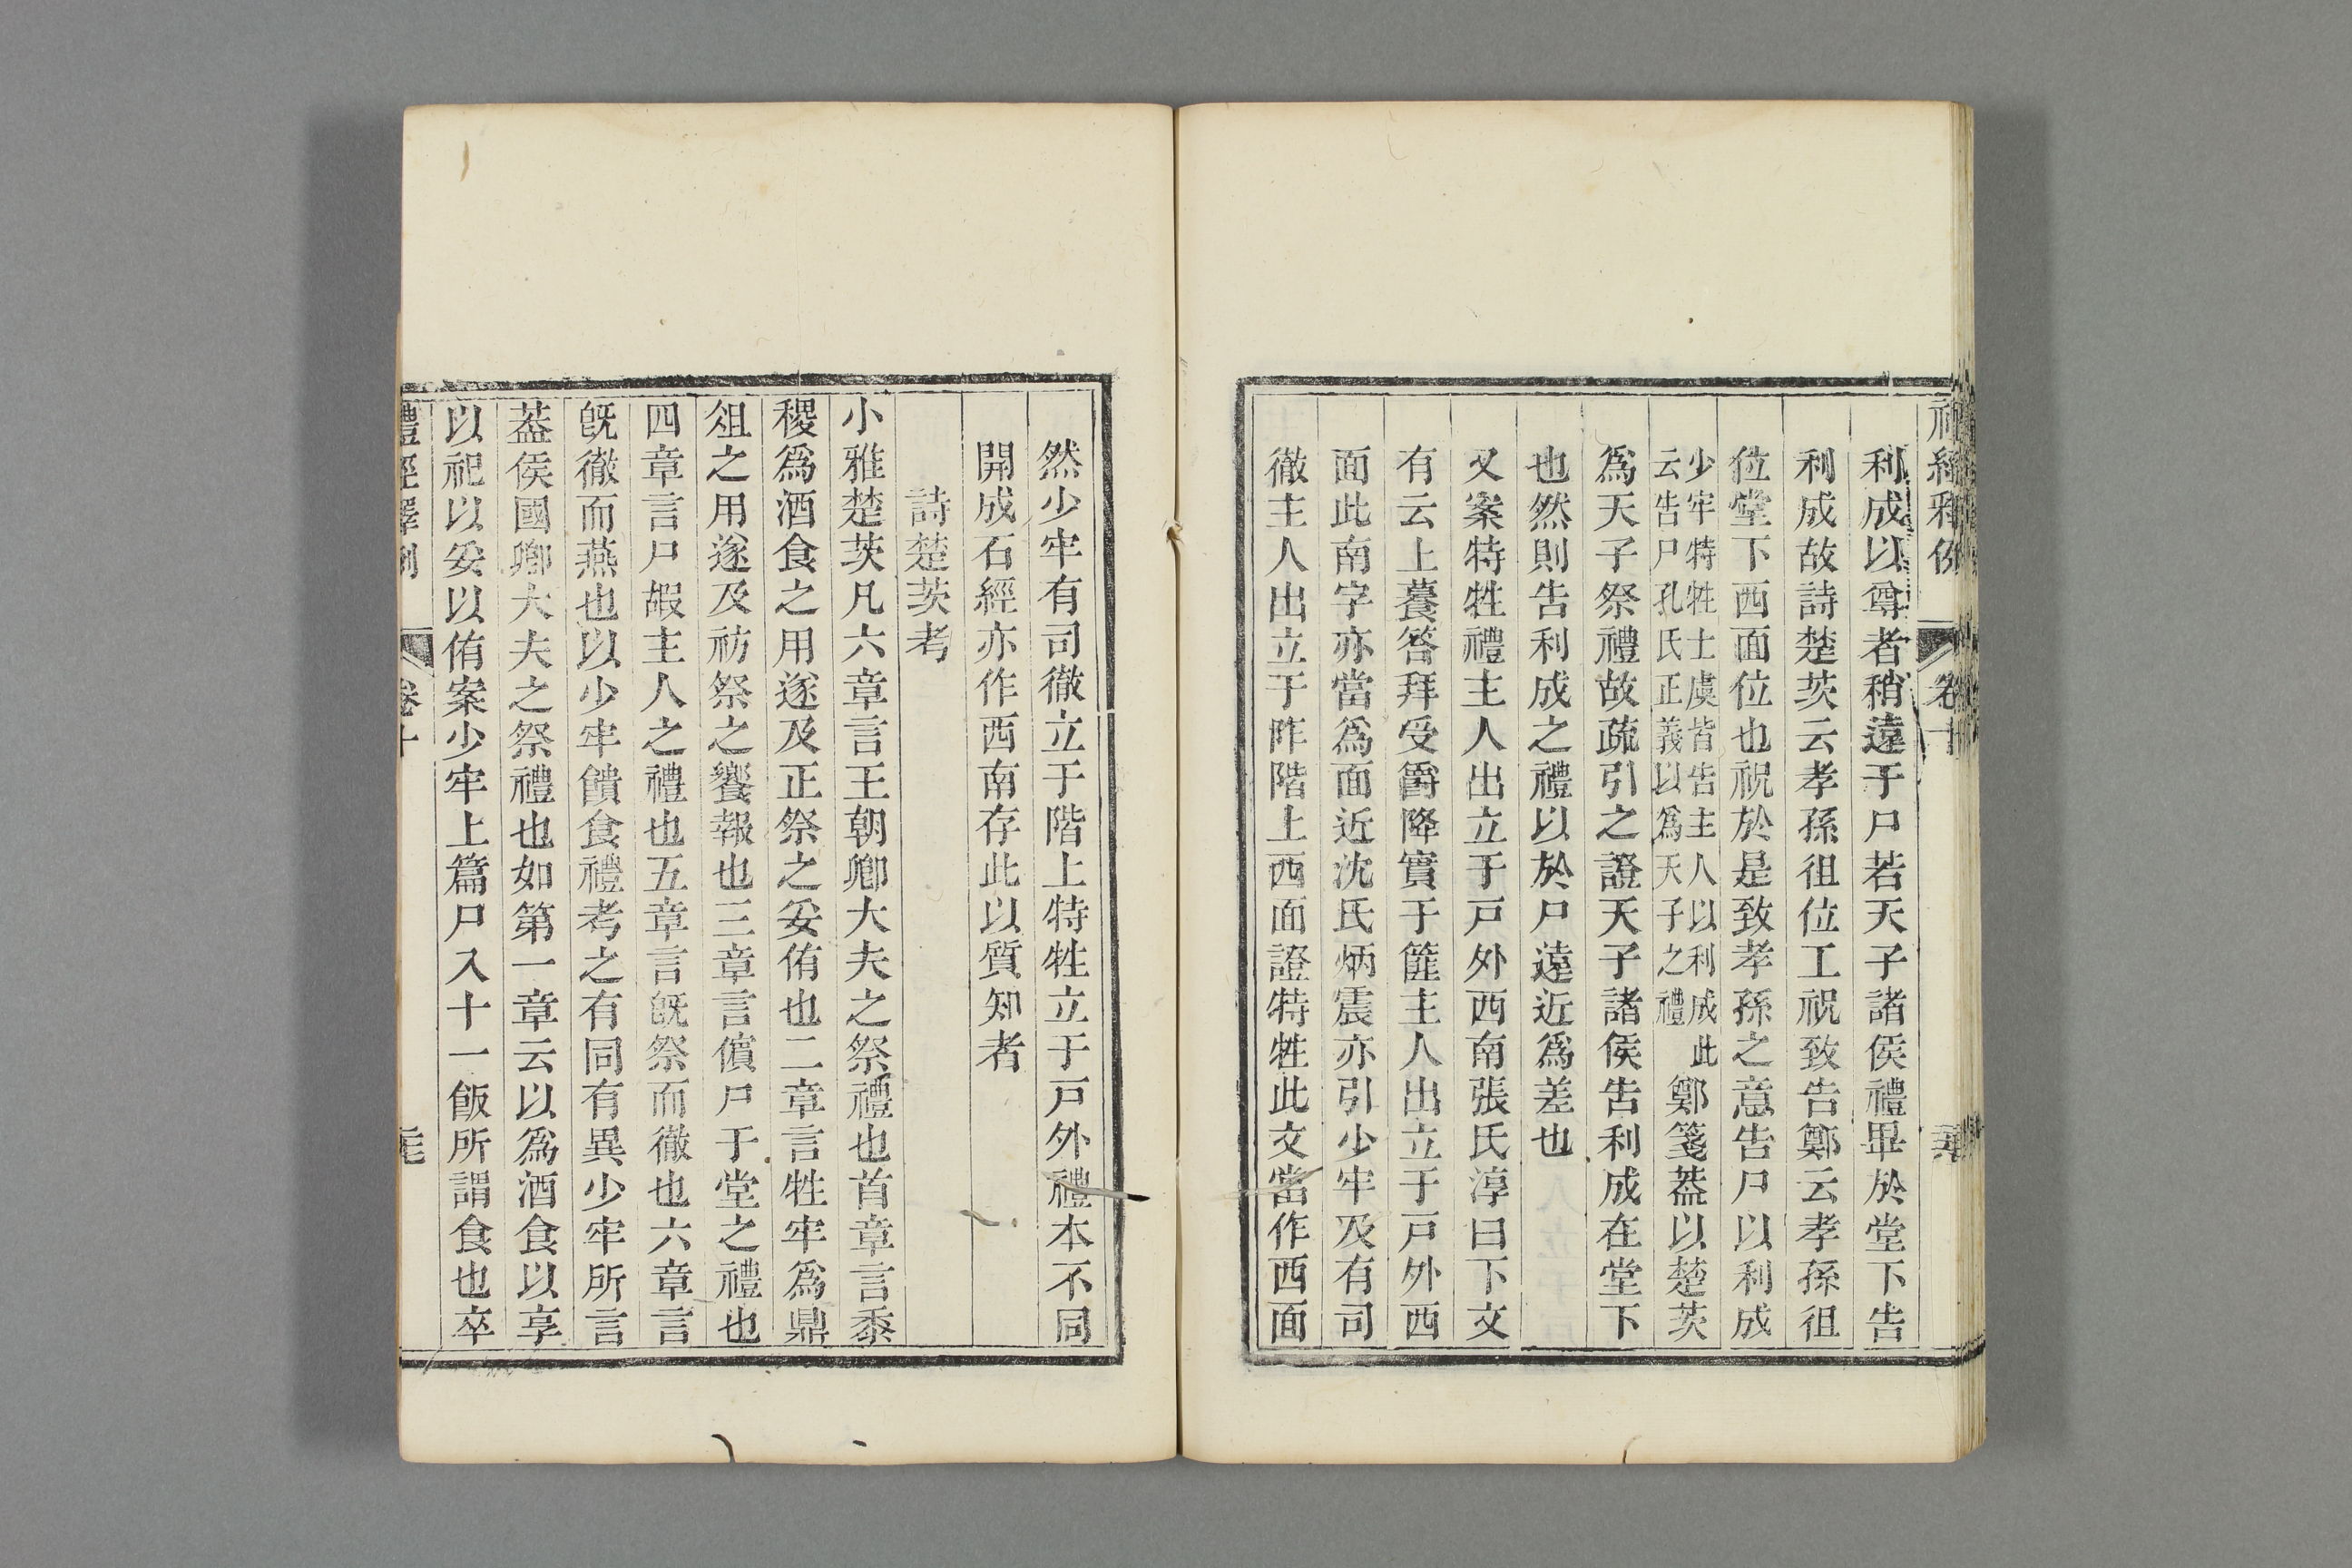 利成以尊者稍遠于尸若天子諸侯禮畢於堂下告
利成故詩楚茨云孝孫徂位工祝致告鄭云孝孫徂
位堂下西面位也祝於是致孝孫之意告尸以利成
少牢特牲士虞皆告主人以利成此
云告尸孔氏正義以為天子之禮
鄭箋蓋以楚茨
為天子祭禮故疏引之證天子諸侯告利成在堂下
也然則告利成之禮以於尸遠近為差也
又案特牲禮主人出立于戸外西南張氏淳曰下文
有云上養答拜受爵降實于篚主人出立于戸外西
面此南字亦當為面近沈氏炳震亦引少牢及有司
徹主人出立于阼階上西面證特牲此文當作西面
然少牢有司徹立于階上特牲立于戸外禮本不同
開成石經亦作西南存此以質知者
詩楚茨考
小雅楚茨凡六章言王朝卿大夫之祭禮也首章言黍
稷為酒食之用遂及正祭之妥侑也二章言牲牢為鼎
俎之用遂及祊祭之饗報也三章言儐尸于堂之禮也
四章言尸嘏主人之禮也五章言旣祭而徹也六章言
旣徹而燕也以少牢饋食禮考之有同有異少牢所言
蓋侯國卿大夫之祭禮也如第一章云以為酒食以享
以祀以妥以侑案少牢上篇尸入十一飯所謂食也卒
禮經釋例
卷十